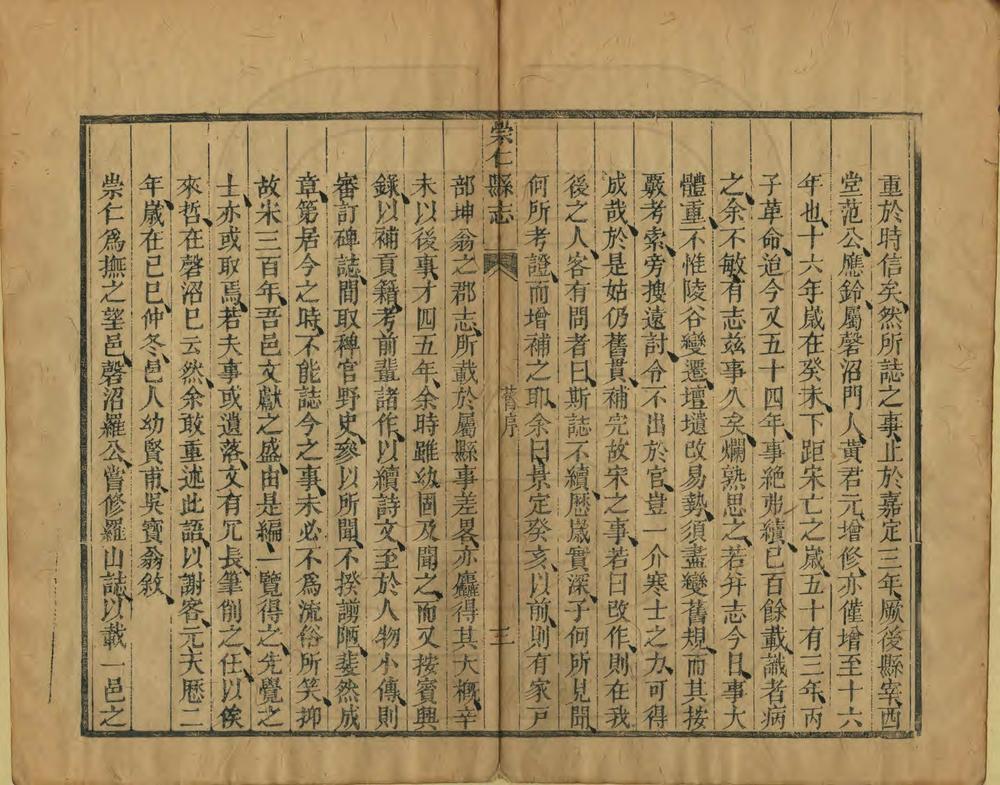 重於時信矣然所誌之事止於嘉定三年厥後縣宰西
堂范公應鈴屬磬沼門人黃君元增修亦僅增至十六
年也十六年歲在癸未下距宋亡之歲五十有三年丙
子革命迨今又五十四年事絶弗續已百餘載識者病
之余不敏有志兹事久矣爛熟思之若并志今日事大
體重不惟陵谷變遷壇壝改易勢須盡變舊規而其按
覈考索旁搜遠討令不出於官豈一介寒士之力可得
成哉於是姑仍舊貫補完故宋之事若曰改作則在我
後之人客有問者曰斯誌不續歷歲實深子何所見聞
何所考證而增補之耶余曰景定癸亥以前則有家戸
崇仁縣志
舊序
三
部坤翁之郡志所載於屬縣事差畧亦麤得其大槪辛
未以後事才四五年余時雖幼固及聞之而又按賓興
錄以補貢籍考前輩諸作以續詩文至於人物小傳則
審訂碑誌間取稗官野史參以所聞不揆謭陋斐然成
章第居今之時不能誌今之事未必不為流俗所笑抑
故宋三百年吾邑文獻之盛由是編一覽得之先覺之
士亦或取焉若夫事或遺落文有冗長筆削之任以俟
來哲在磬沼已云然余敢重述此語以謝客元天曆二
年歲在己巳仲冬邑人幼賢甫吳寶翁敘
崇仁爲撫之望邑磬沼羅公嘗修羅山誌以載一邑之